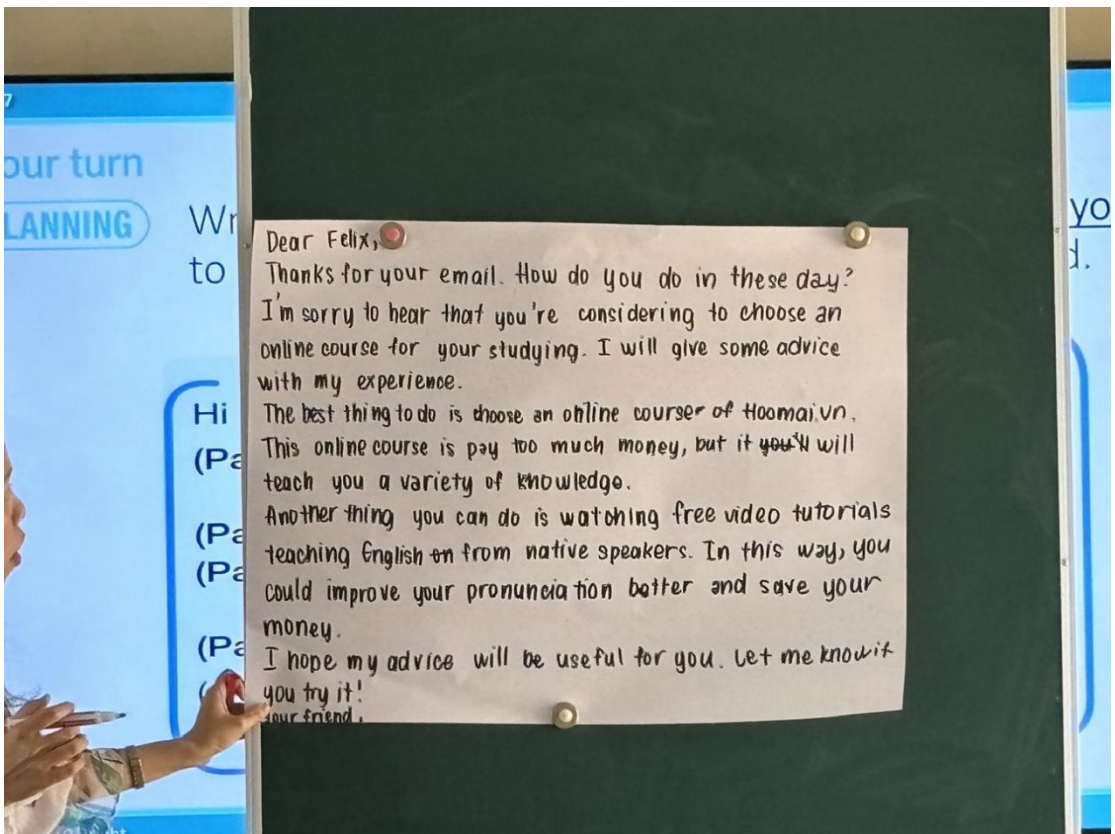 7
our turn
LANNING
Wr
yo
to
d.
Hi
(Pa
(Pa
(Pa
(Pa
(
Dear Felix,
Thanks for your email. How do you do in these day?
I'm sorry to hear that you're considering to choose an
online course for your studying. I will give some advice
with my experience.
The best thing to do is choose an online courser of Hoomai.vn.
This online course is pay too much money, but it you'll will
teach you a variety of knowledge.
Another thing you can do is watching free video tutorials
teaching English on from native speakers. In this way, you
could improve your pronunciation better and save your
money.
I hope my advice will be useful for you. Let me know if
you try it!
Your friend,